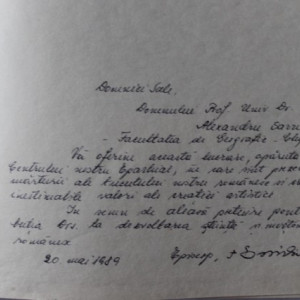 Domniei Sale,
Domnului Prof. Univ. Dr.
Alexandru
- Facultatea de Geografie - Cluj
Vă oferim această lucrare, apărută
Centrului nostru Eparhial, în care sînt
mărturii ale trecutului nostru românesc și
inestimabile valori ale creației artistice
În semn de aleasă prețuire pentru
buția Dvs. la dezvoltarea științei și învăță
românesc
20. mai 1989 Episcop,